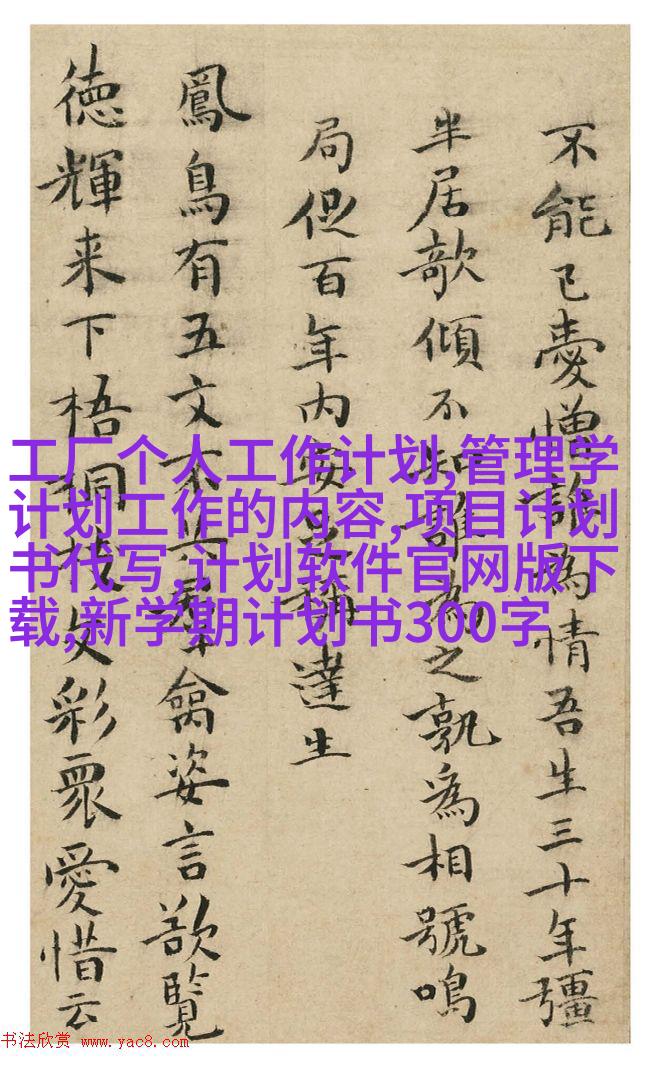 不能已憂憎為情吾生三十年彊
半居欹傾不知雖為之孰為相號鳴
局促百年內稱達生
鳳鳥有五文不与禽姿言欲覽
德輝来下梧桐枝文彩眾愛惜云
工厂个人工作计划,管理学
计划工作的内容,项目计划
书代写,计划软件官网版下
载,新学期计划书300字
书法欣赏 www.yac8.com